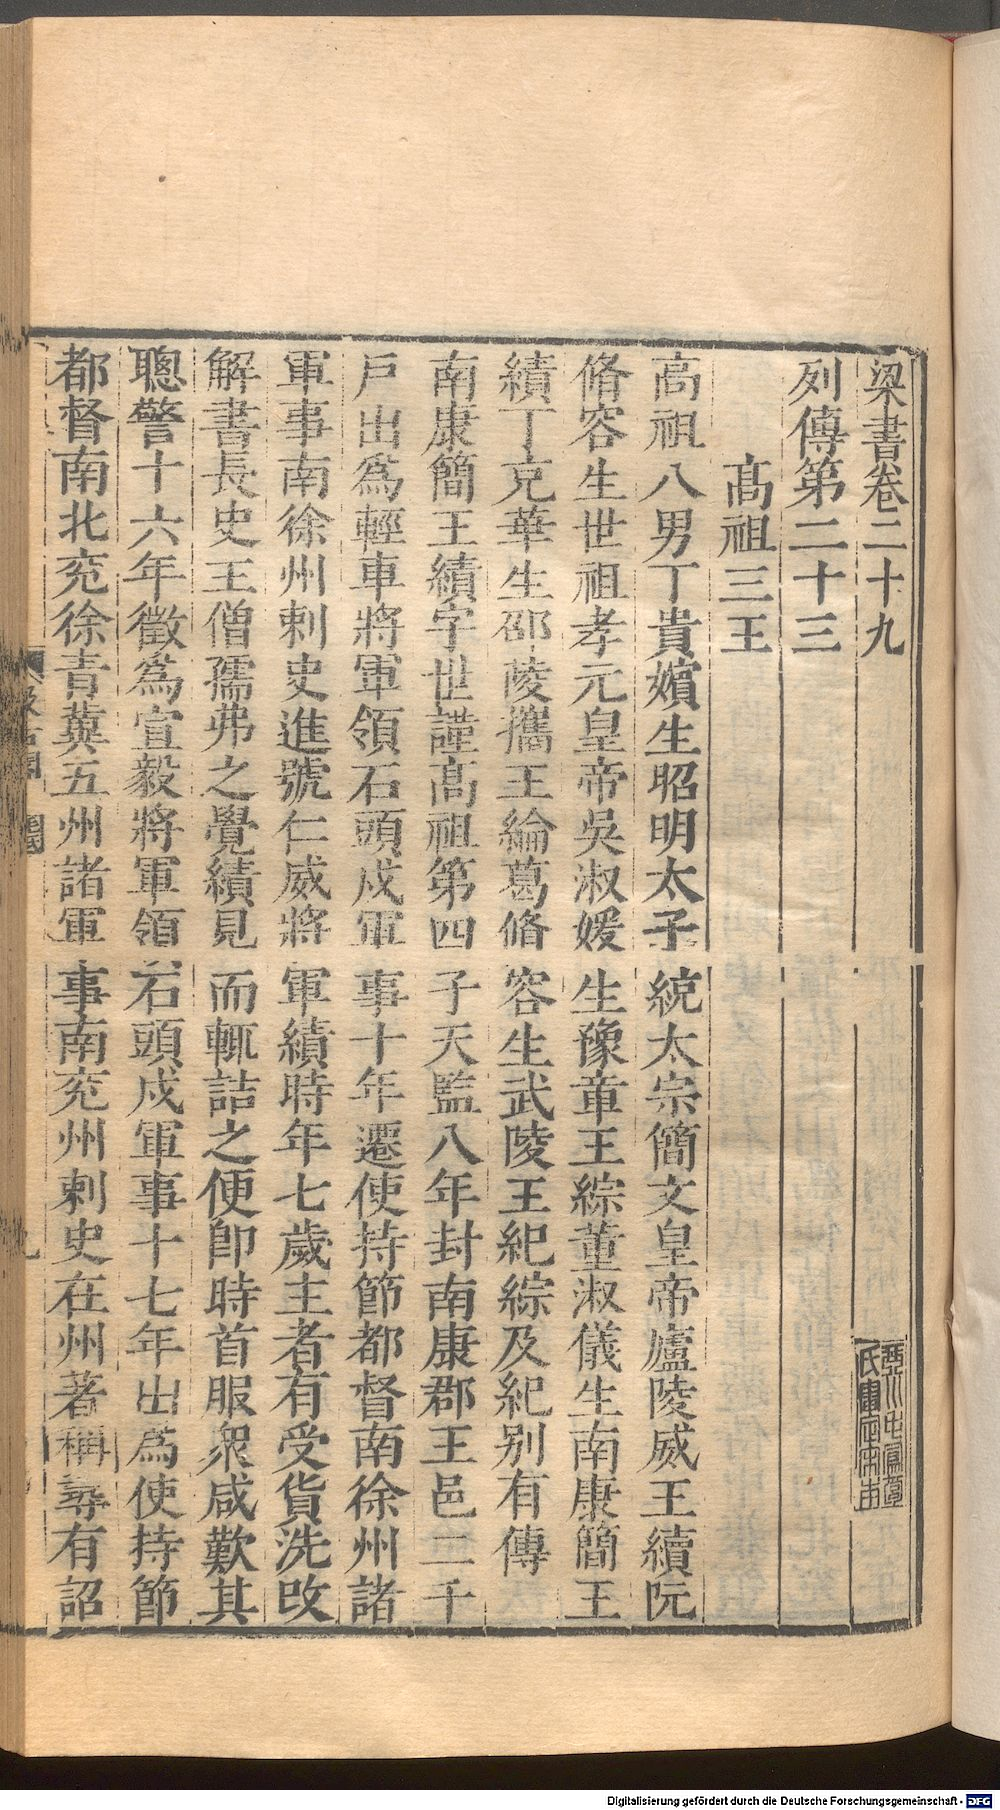 梁書卷二十九
列傳第二十三
髙祖三王
高祖八男丁貴嬪生昭明太子統太宗簡文皇帝廬陵威王續阮
脩容生世祖孝元皇帝吳淑媛生豫章王綜董淑儀生南康簡王
績丁充華生邵陵攜王綸葛脩容生武陵王紀綜及紀别有傳
南康簡王績字世謹髙祖第四子天監八年封南康郡王邑二千
戶出爲輕車將軍領石頭戍軍事十年遷使持節都督南徐州諸
軍事南徐州刺史進號仁威將軍績時年七歲主者有受貨洗改
解書長史王僧孺弗之覺績見而輒詰之便卽時首服衆咸歎其
聰警十六年徵爲宣毅將軍領石頭戍軍事十七年出爲使持節
都督南北兖徐青冀五州諸軍事南兖州刺史在州著稱尋有詔
Digitalisierung gefördert durch die Deutsche Forschungsgemeinschaft - DFG